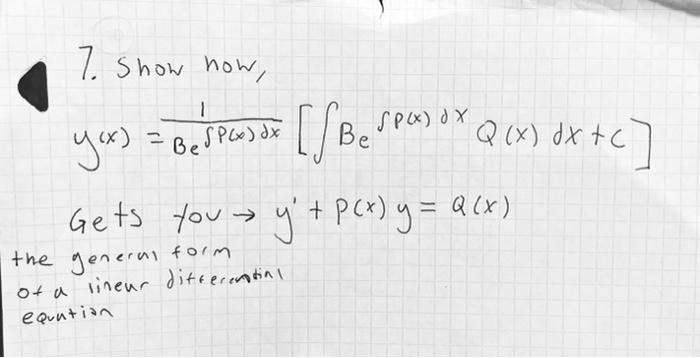 7. Show how,
y(x) = 1/Be^∫P(x)dx [∫Be^∫P(x) dx Q(x) dx + c]
Gets you → y' + P(x) y = Q(x)
the general form
of a linear differential
equation